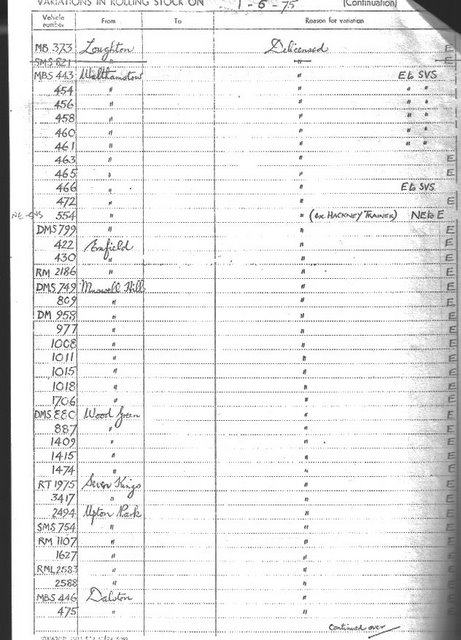 VARIATIONS IN ROLLING STOCK ON 1-6-75 (Continuation)
Vehicle number From To Reason for variation
MB 373 Loughton Delicensed E
SMS 821 " " E
MBS 443 Walthamstow " E to SVS
454 " " " "
456 " " " "
458 " " " "
460 " " " "
461 " " " "
463 " " E
465 " " E
466 " " E to SVS
472 " " E
NE-SVS 554 " " (ex HACKNEY TRAINER) NE to E
DMS 799 " " E
422 Enfield " E
430 " " E
RM 2186 " " E
DMS 749 Muswell Hill " E
809 " " E
DM 958 " " E
977 " " E
1008 " " E
1011 " " E
1015 " " E
1018 " " E
1706 " " E
DMS 880 Wood Green " E
887 " " E
1409 " " E
1415 " " E
1474 " " E
RT 1975 Seven Kings " E
3417 " " E
2494 Upton Park " E
SMS 754 " " E
RM 1107 " " E
1627 " " E
RML 2583 " " E
2588 " " E
MBS 446 Dalston " E
475 " " E
Continued over